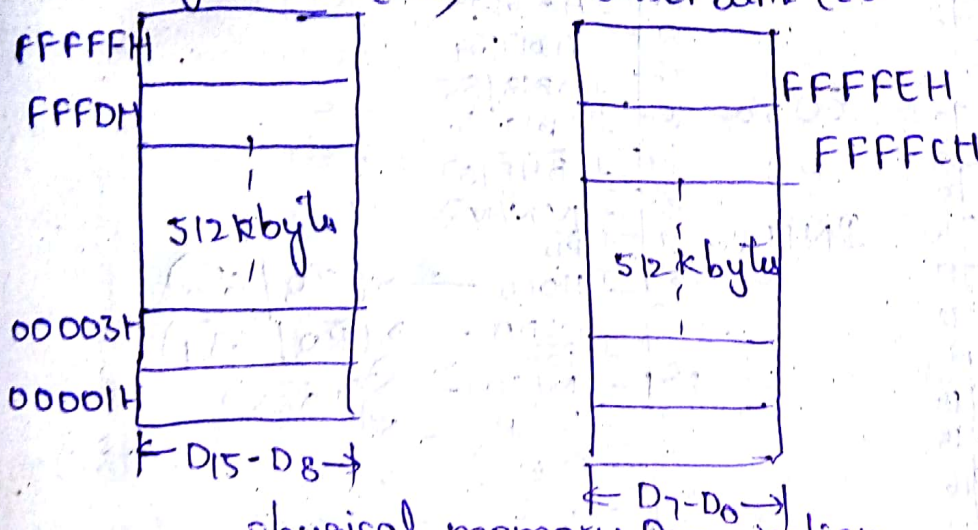 FFFFFH
FFFDH
512 kbytes
00003H
00001H
D15-D8
FFFFEH
FFFFCH
512 kbytes
D7-D0
physical memory